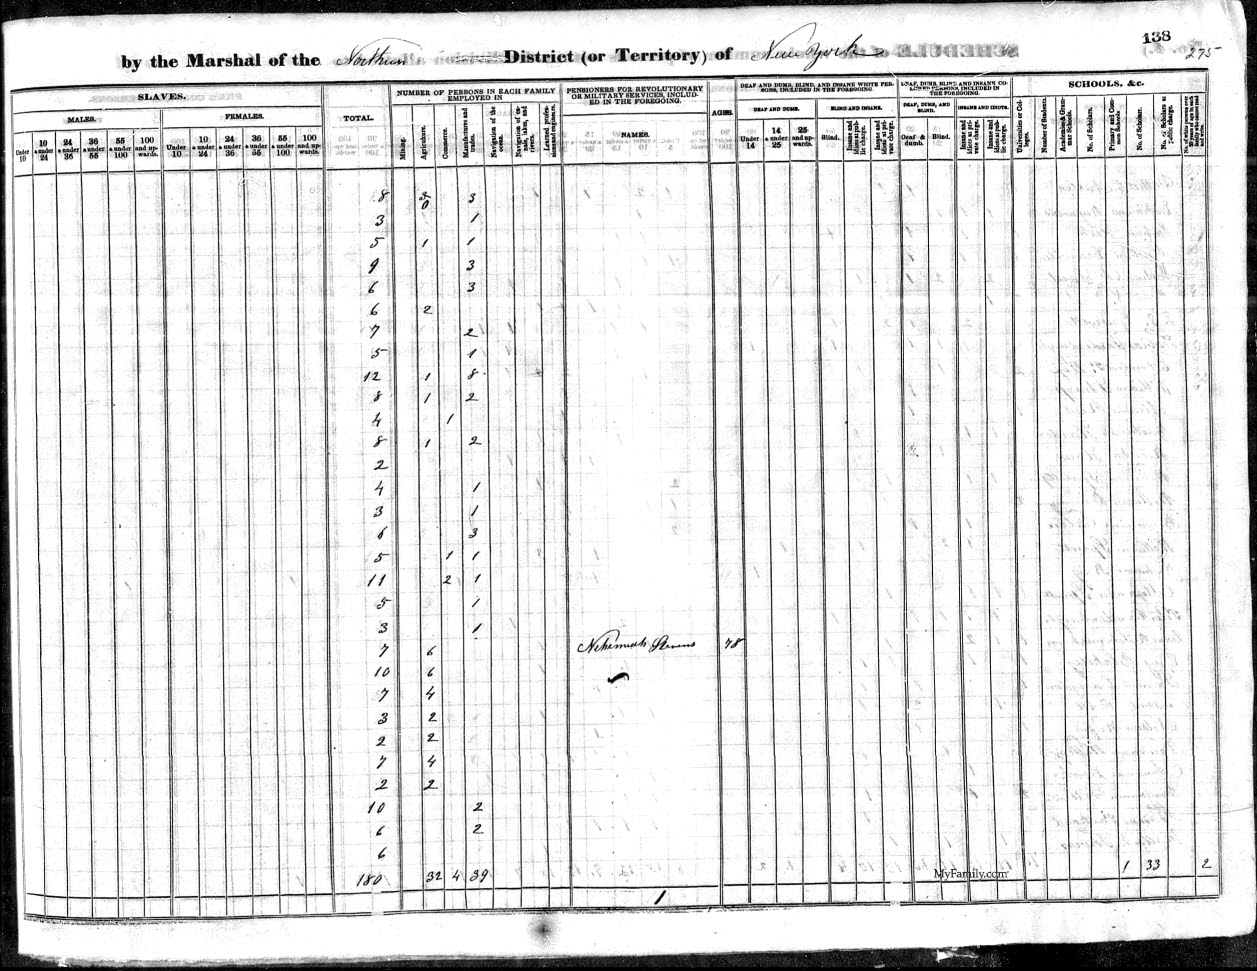 138
275
by the Marshal of the Northern District (or Territory) of New York
SLAVES.
MALES. FEMALES.
Under 10 10 & under 24 24 & under 36 36 & under 55 55 & under 100 100 and upwards. Under 10 10 & under 24 24 & under 36 36 & under 55 55 & under 100 100 and upwards.
TOTAL.
NUMBER OF PERSONS IN EACH FAMILY EMPLOYED IN
Mining. Agriculture. Commerce. Manufactures and trades. Navigation of the ocean. Navigation of canals, lakes, and rivers. Learned professions and engineers.
PENSIONERS FOR REVOLUTIONARY OR MILITARY SERVICES, INCLUDED IN THE FOREGOING.
NAMES. AGES.
DEAF AND DUMB, BLIND, AND INSANE WHITE PERSONS, INCLUDED IN THE FOREGOING.
DEAF AND DUMB. BLIND AND INSANE.
Under 14 14 & under 25 25 and upwards. Blind. Insane and idiots at public charge. Insane and idiots at private charge.
DEAF, DUMB, BLIND AND INSANE COLORED PERSONS, INCLUDED IN THE FOREGOING.
DEAF, DUMB, AND BLIND. INSANE AND IDIOTS.
Deaf & dumb. Blind. Insane and idiots at private charge. Insane and idiots at public charge.
SCHOOLS, &c.
Universities or Colleges. Number of Students. Academies & Grammar Schools. No. of Scholars. Primary and Common Schools. No. of Scholars. No. of Scholars at public charge.
8 3
3 1
5 1 1
9 3
6 3
6 2
7 2
5 1
12 1 8
8 1 2
4 1
8 1 2
2
4 1
3 1
6 3
5 1 1
11 2 1
5 1
3 1
7 6 Nehemiah Stevens 78
10 6
7 4
3 2
2 2
7 4
2 2
10 2
6 2
6
180 32 4 39 1 33 2
MyFamily.com
1